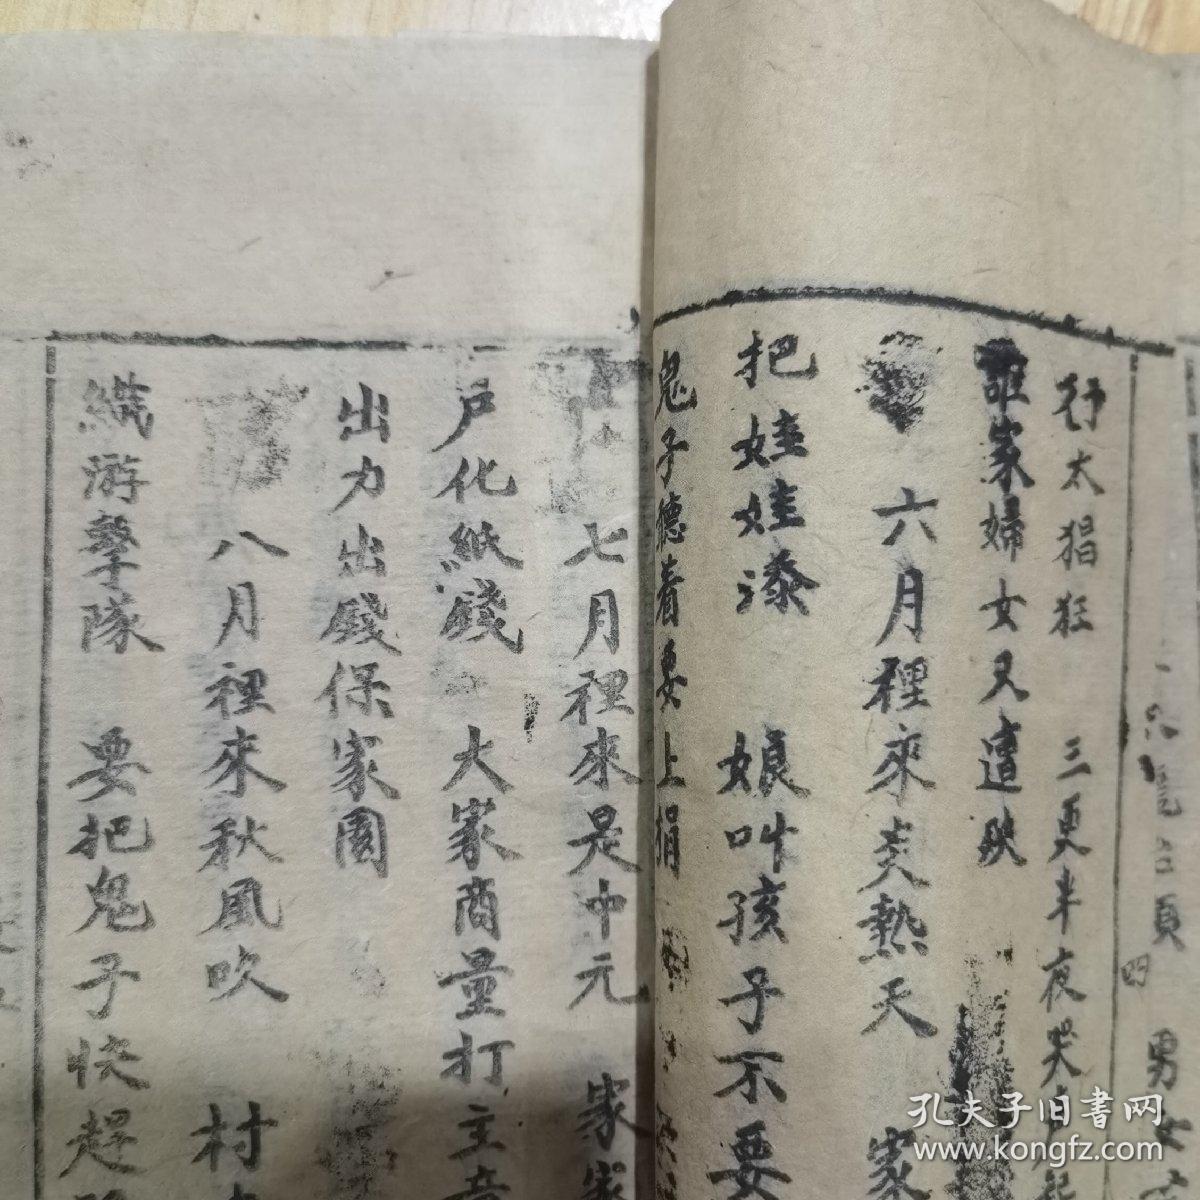 男女
四
行太猖狂 三更半夜哭
誰家婦女又遭殃
六月裡來炎熱天 家
把娃娃漆 娘叫孩子不要
鬼子聽着要上捐
七月裡來是中元 家家
戶化紙錢 大家商量打主意
出力出錢保家園
八月裡來秋風吹 村
織游擊隊 要把鬼子快趕
孔夫子旧書网
www.kongfz.com